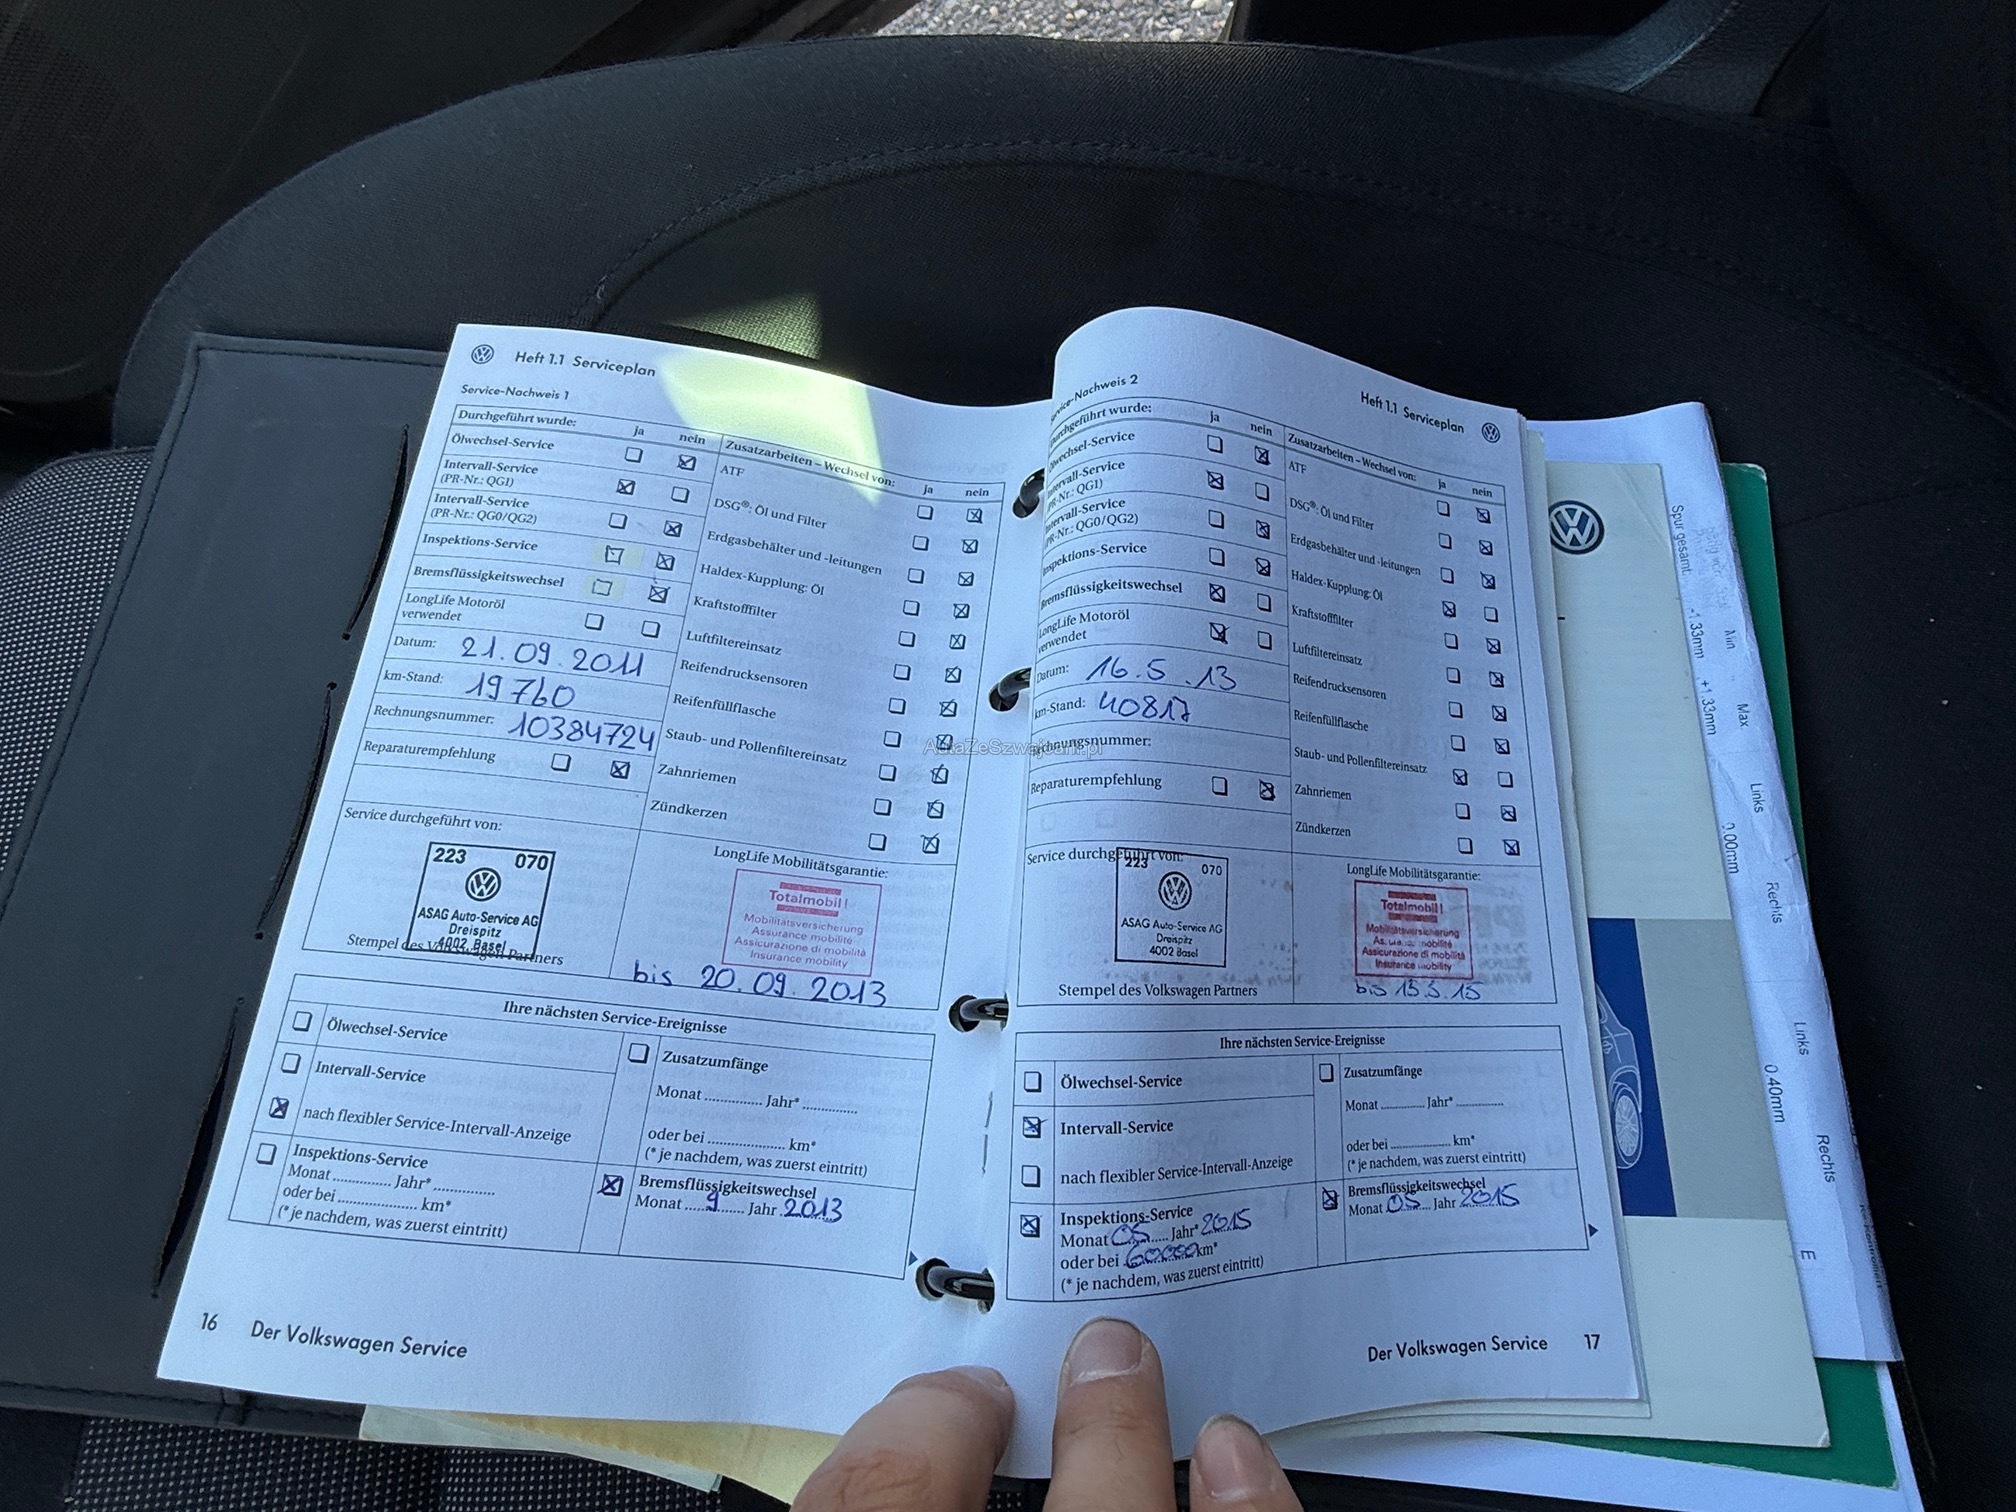 Heft 1.1 Serviceplan
Service-Nachweis 1
Durchgeführt wurde:
ja
nein
Ölwechsel-Service
Intervall-Service
(PR-Nr.: QG1)
Intervall-Service
(PR-Nr.: QG0/QG2)
Inspektions-Service
Bremsflüssigkeitswechsel
LongLife Motoröl
verwendet
Datum: 21.09.2011
km-Stand: 19760
Rechnungsnummer: 10384724
Reparaturempfehlung
Zusatzarbeiten – Wechsel von:
ja
nein
ATF
DSG®: Öl und Filter
Erdgasbehälter und -leitungen
Haldex-Kupplung: Öl
Kraftstofffilter
Luftfiltereinsatz
Reifendrucksensoren
Reifenfüllflasche
Staub- und Pollenfiltereinsatz
Zahnriemen
Zündkerzen
Service durchgeführt von:
223 070
ASAG Auto-Service AG
Dreispitz
4002 Basel
Stempel des Volkswagen Partners
LongLife Mobilitätsgarantie:
Totalmobil!
Mobilitätsversicherung
Assurance mobilité
Assicurazione di mobilità
Insurance mobility
bis 20.09.2013
Ihre nächsten Service-Ereignisse
Ölwechsel-Service
Intervall-Service
nach flexibler Service-Intervall-Anzeige
Inspektions-Service
Monat .............. Jahr* ..............
oder bei .................. km*
(* je nachdem, was zuerst eintritt)
Zusatzumfänge
Monat .............. Jahr* .............
oder bei .................. km*
(* je nachdem, was zuerst eintritt)
Bremsflüssigkeitswechsel
Monat 9 Jahr 2013
16 Der Volkswagen Service
Heft 1.1 Serviceplan
Service-Nachweis 2
Durchgeführt wurde:
ja
nein
Ölwechsel-Service
Intervall-Service
(PR-Nr.: QG1)
Intervall-Service
(PR-Nr.: QG0/QG2)
Inspektions-Service
Bremsflüssigkeitswechsel
LongLife Motoröl
verwendet
Datum: 16.5.13
km-Stand: 40817
Rechnungsnummer:
Reparaturempfehlung
Zusatzarbeiten – Wechsel von:
ja
nein
ATF
DSG®: Öl und Filter
Erdgasbehälter und -leitungen
Haldex-Kupplung: Öl
Kraftstofffilter
Luftfiltereinsatz
Reifendrucksensoren
Reifenfüllflasche
Staub- und Pollenfiltereinsatz
Zahnriemen
Zündkerzen
Service durchgeführt von:
223 070
ASAG Auto-Service AG
Dreispitz
4002 Basel
Stempel des Volkswagen Partners
LongLife Mobilitätsgarantie:
Totalmobil!
Mobilitätsversicherung
mobilité
Assicurazione di mobilità
Insurance mobility
bis 15.5.15
Ihre nächsten Service-Ereignisse
Ölwechsel-Service
Intervall-Service
nach flexibler Service-Intervall-Anzeige
Inspektions-Service
Monat 05 Jahr* 2015
oder bei 60000 km*
(* je nachdem, was zuerst eintritt)
Zusatzumfänge
Monat .............. Jahr* ..............
oder bei .................. km*
(* je nachdem, was zuerst eintritt)
Bremsflüssigkeitswechsel
Monat 05 Jahr 2015
Der Volkswagen Service 17
AutaZeSzwajcarii.pl
Spur gesamt:
-1.33mm +1.33mm
Min Max
Links Rechts
Links Rechts
0.40mm
E